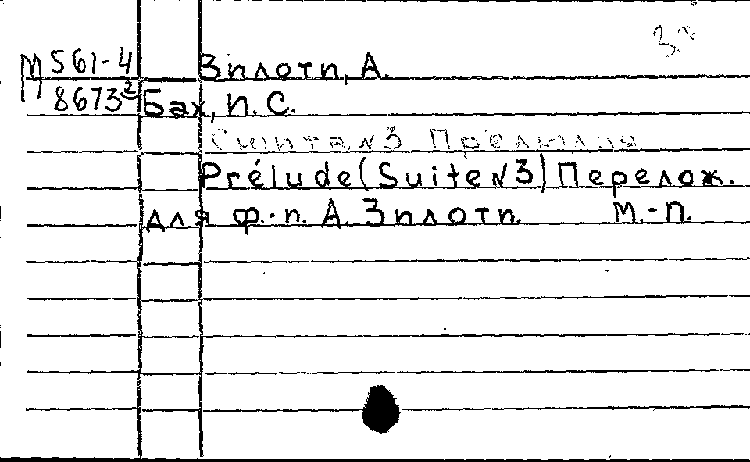 М 561-4 Зилоти, А.
П 8673² Бах, И. С.
Сюита №3 Прелюдия
Prélude (Suite №3) Перелож.
для ф.-п. А. Зилоти. М.-П.